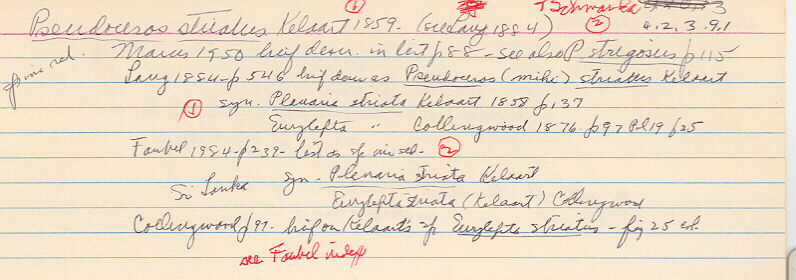 Pseudoceros striatus Kelaart 1859 - (see Lang 1884) ① T Schmarda ② 3
4.2.3.9.1
Marcus 1950 brief descr. in list p 88 - see also P strigosus p 115
sp inc sed.
Lang 1884 - p 546 brief descr as Pseudoceros (mihi) striatus Kelaart
① syn. Planaria striata Kelaart 1858 p 137
Eurylepta " Collingwood 1876 p 97 Pl 19 f 25
Faubel 1984 - p 239 - list as sp inc sed - ②
Sri Lanka syn - Planaria striata Kelaart
Eurylepta striata (Kelaart) Collingwood
Collingwood p 97. brief on Kelaart's sp Eurylepta striatus - fig 25 col.
see Faubel indeff